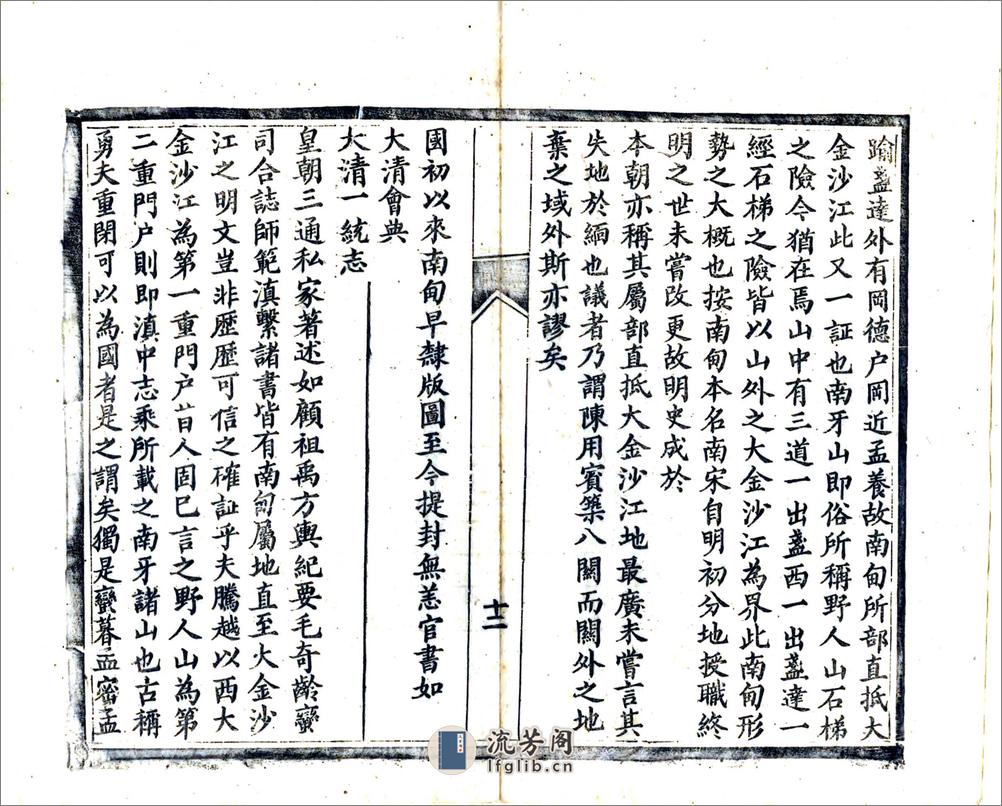 踰盞達外有岡德户岡近孟養故南甸所部直抵大
金沙江此又一証也南牙山即俗所稱野人山石梯
之險今猶在焉山中有三道一出盞西一出盞達一
經石梯之險皆以山外之大金沙江為界此南甸形
勢之大概也按南甸本名南宋自明初分地授職終
明之世未嘗改更故明史成於
本朝亦稱其屬部直抵大金沙江地最廣未嘗言其
失地於緬也議者乃謂陳用賓築八關而關外之地
棄之域外斯亦謬矣
十二
國初以來南甸早隸版圖至今提封無恙官書如
大清會典
大清一統志
皇朝三通私家著述如顧祖禹方輿紀要毛奇齡蠻
司合誌師範滇繫諸書皆有南甸屬地直至大金沙
江之明文豈非歷歷可信之確証乎夫騰越以西大
金沙江為第一重門户昔人固已言之野人山為第
二重門户則即滇中志乘所載之南牙諸山也古稱
勇夫重閉可以為國者是之謂矣獨是蠻暮孟密孟
流芳阁
lfglib.cn